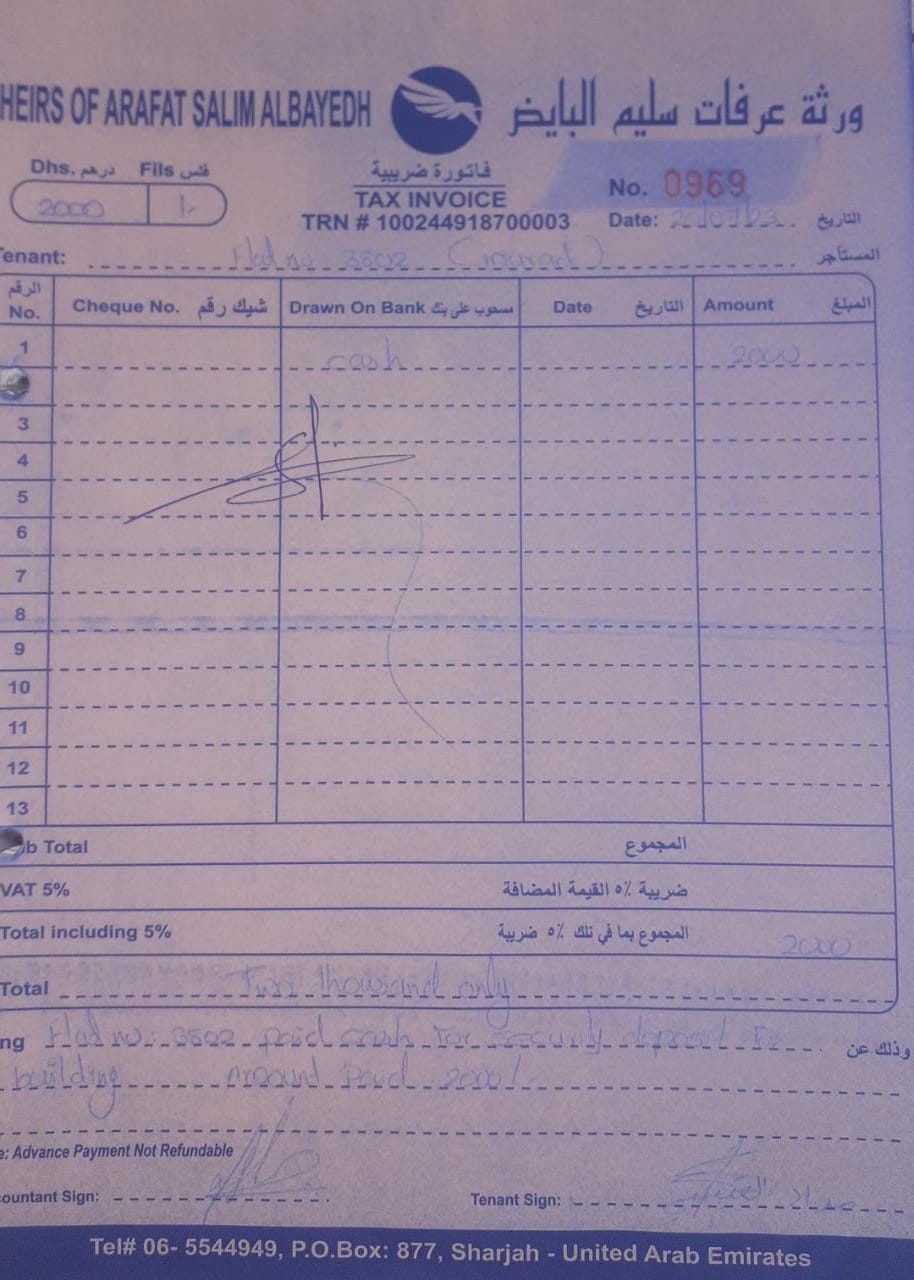 HEIRS OF ARAFAT SALIM ALBAYEDH
ورثة عرفات سليم البايض
Dhs. درهم Fils فلس
2000
فاتورة ضريبية
TAX INVOICE
No. 0969
TRN # 100244918700003
Date: 20/07/23 التاريخ
enant: Flat no 3502 المستأجر
الرقم No.
Cheque No. شيك رقم
Drawn On Bank مسحوب على بنك
Date التاريخ
Amount المبلغ
1 cash 2000
3
4
5
6
7
8
9
10
11
12
13
b Total المجموع
VAT 5% ضريبة ٥% القيمة المضافة
Total including 5% المجموع بما في تلك ٥% ضريبة 2000
Total Two thousand only
ng Flat no: 3502 paid cash for security deposit for وذلك عن
building Amount Paid 2000/.
e: Advance Payment Not Refundable
countant Sign:
Tenant Sign:
Tel# 06- 5544949, P.O.Box: 877, Sharjah - United Arab Emirates